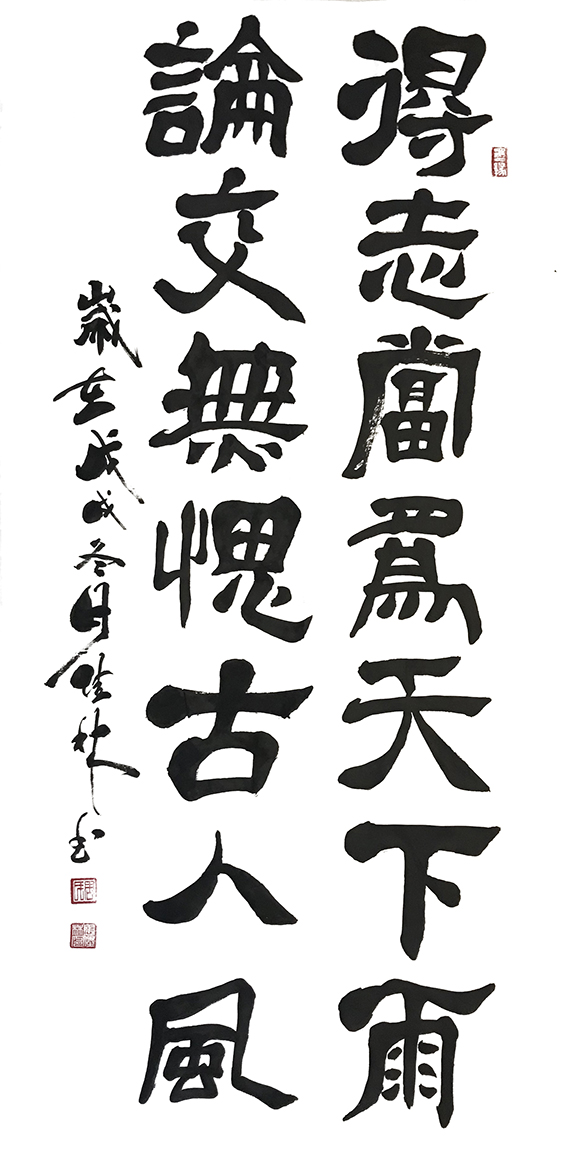 得志當為天下雨
論交無愧古人風
歲在戊戌冬月佳林書